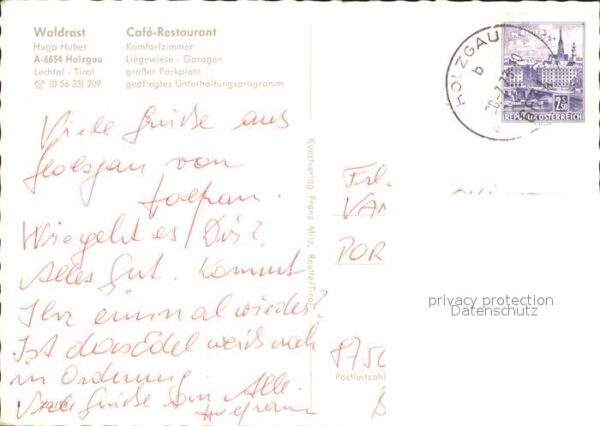 Waldrast Café-Restaurant
Hugo Huber Komfortzimmer
A-6654 Holzgau Liegewiese - Garagen
Lechtal - Tirol großer Parkplatz
☎ (0 56 33) 209 gepflegtes Unterhaltungsprogramm
HOLZGAU
b
2.50
REPUBLIK ÖSTERREICH
Viele Grüße aus
Holzgau von
Wie geht es Dir?
Alles Gut. Kommt
Ihr einmal wieder?
Ist das Edelweiß noch
in Ordnung.
Viele Grüße Alle.
Kunstverlag Franz Milz, Reutte/Tirol
Frl.
VAN
POR
privacy protection
Datenschutz
8750
Postleitzahl